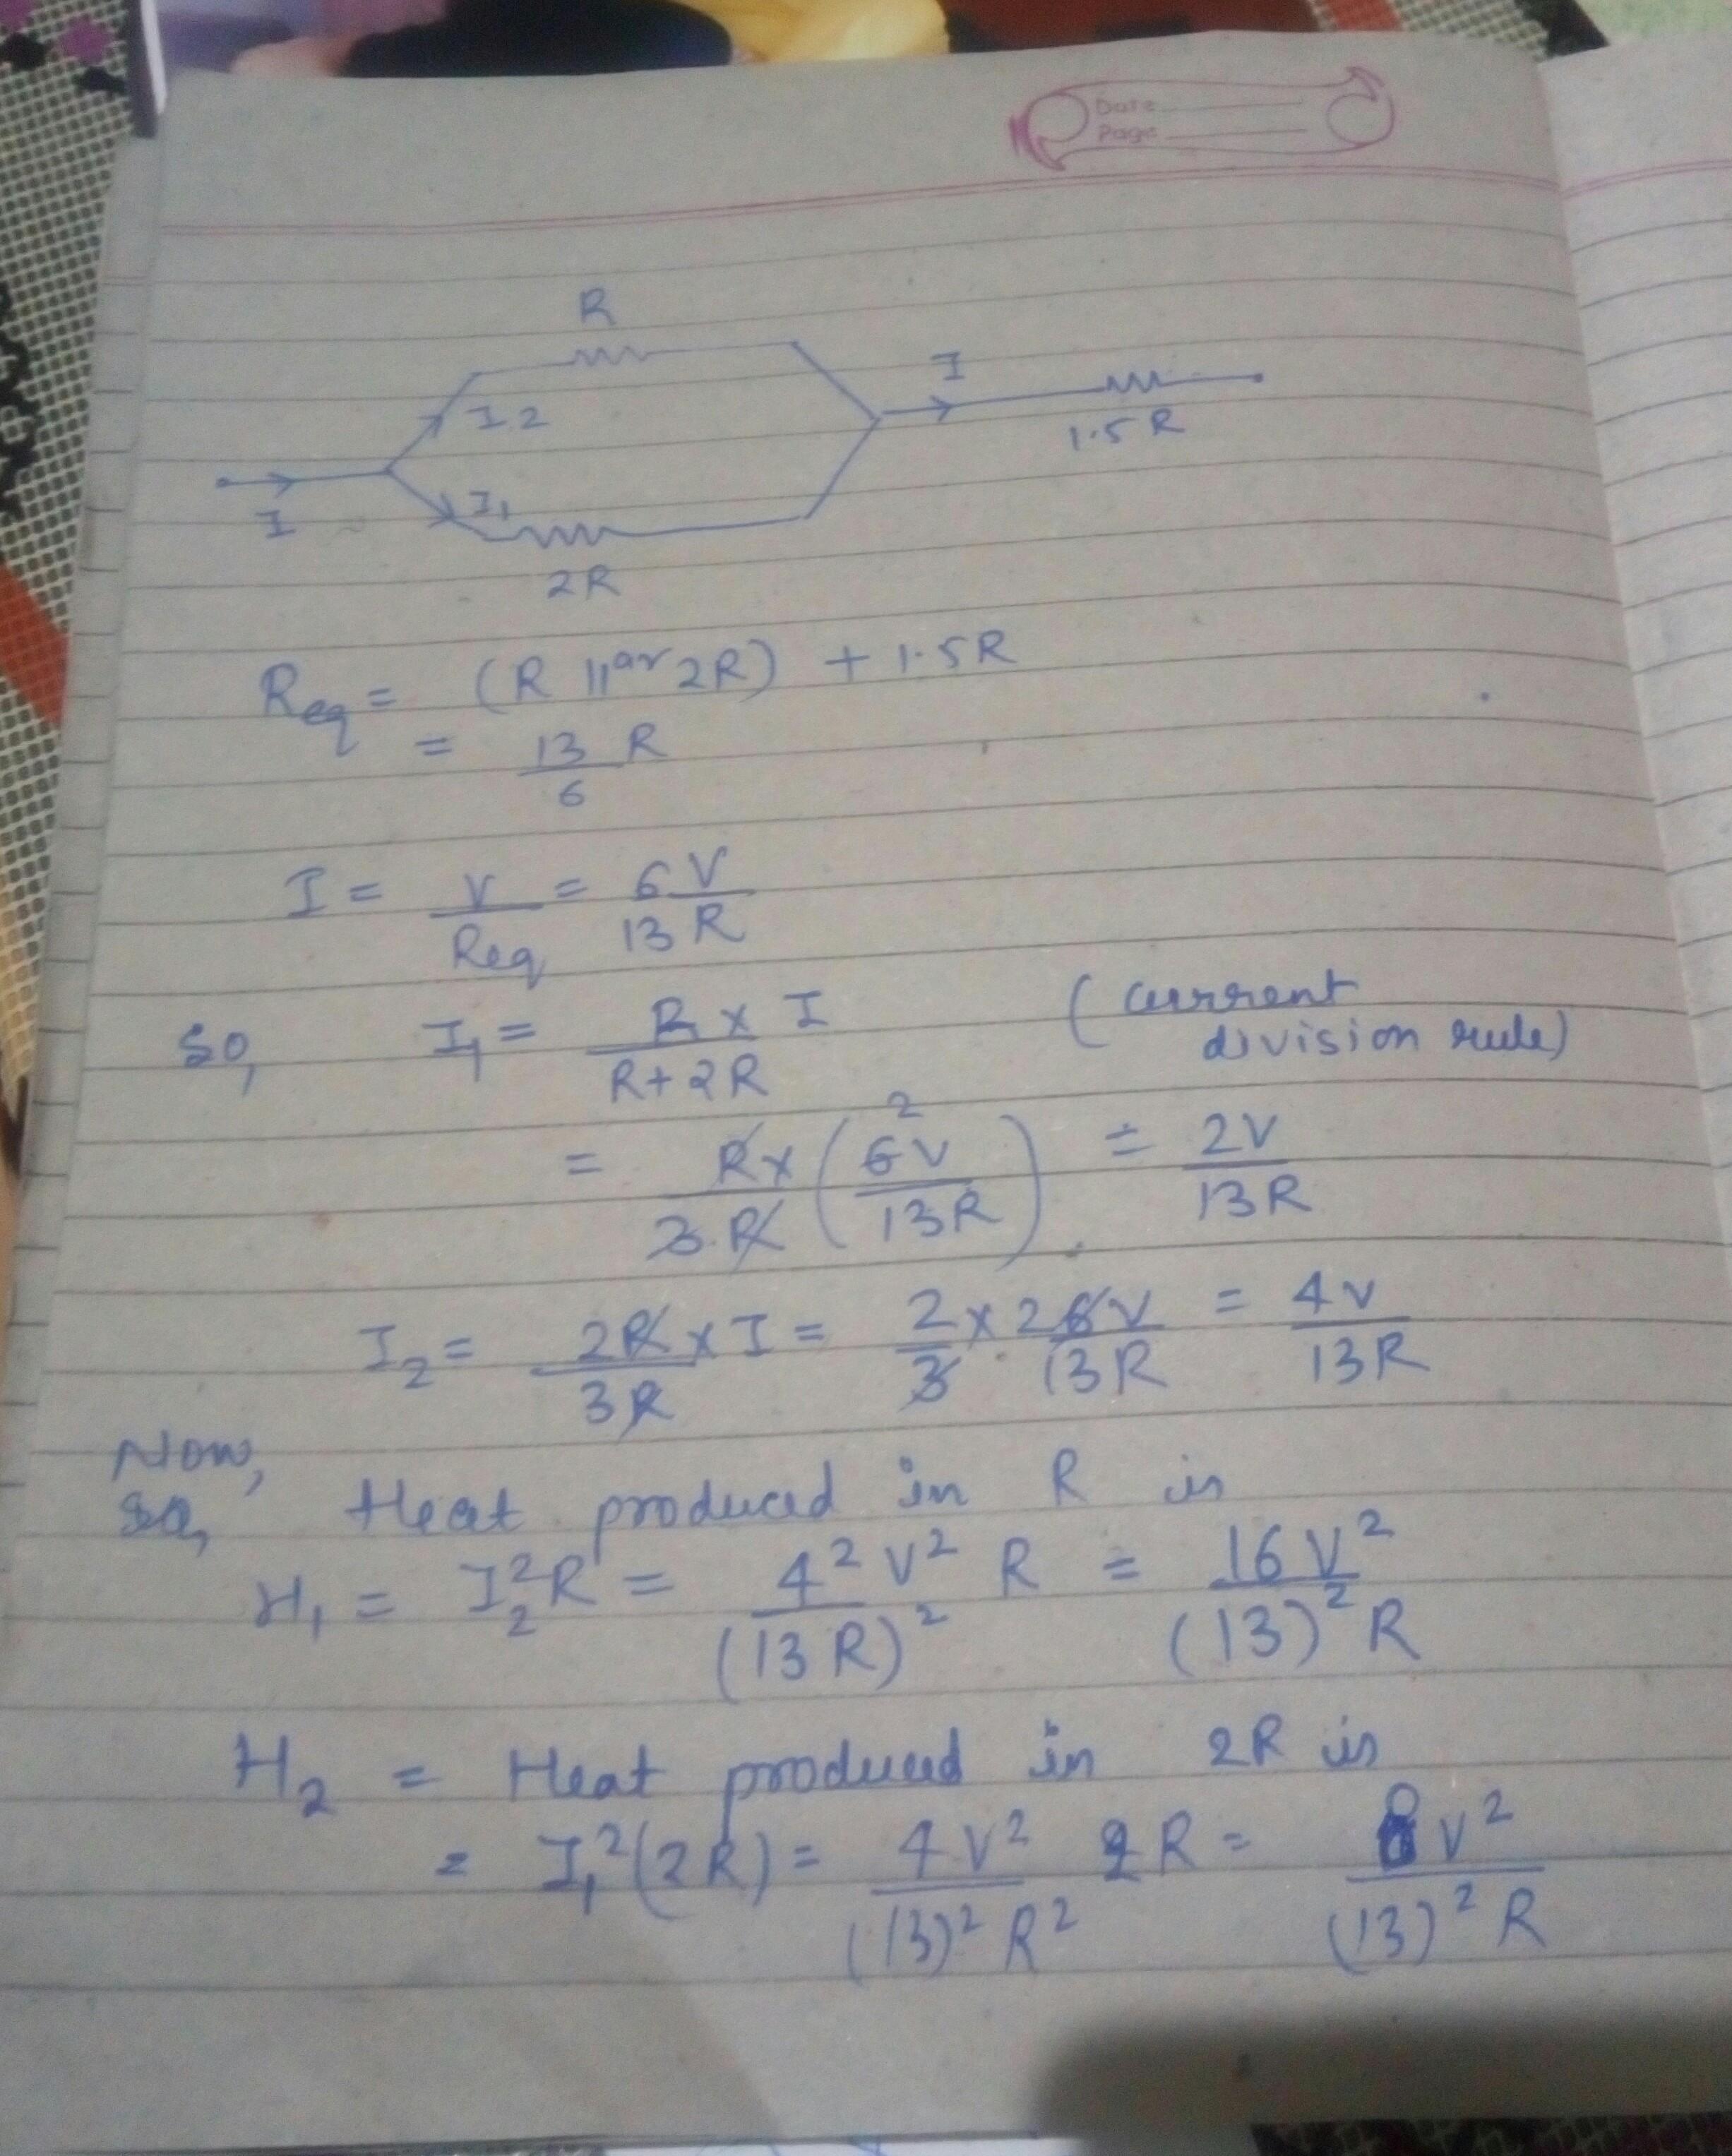 Date
Page
R
I2
I
1.5 R
I
I₁
2R
Req = (R ||ᵃʳ 2R) + 1.5R
= 13/6 R
I = V/Req = 6V/13R
So, I₁ = R × I / R+2R (current division rule)
= R×/3R (6V/13R) 2 = 2V/13R
I₂ = 2R/3R × I = 2/3 × 2 6V/13R = 4V/13R
Now,
So, Heat produced in R is
H₁ = I₂²R = 4²V²/(13R)² R = 16V²/(13)²R
H₂ = Heat produced in 2R is
= I₁²(2R) = 4V²/(13)²R² 2R = 8V²/(13)²R